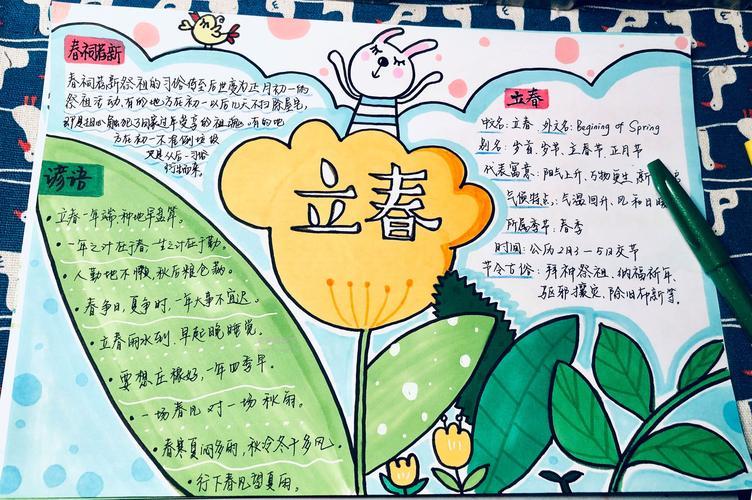 春祠荐新
春祠荐新祭祖的习俗传至后世变为正月初一的
祭祖活动,有的地方在初一以后几天不扫除是
方在初一不准倒垃圾
立春
谚语
立春一年端,种地早盘算。
一年之计在于春,一生之计在于勤。
人勤地不懒,秋后粮仓满。
春争日,夏争时,一年大事不宜迟。
立春雨水到,早起晚睡觉。
要想庄稼好,一年四季早。
一场春风对一场秋雨。
春寒夏闷多雨,秋冷冬干多风。
行下春风望夏雨。
立春
中名:立春 外文名:Begining of Spring
别名:岁首、岁节、立春节、正月节
代表寓意:阳气上升、万物更生、新
气候特点:气温回升、风和日暖
所属季节:春季
时间:公历2月3—5日交节
节令古俗:拜神祭祖、纳福祈年、
驱邪攘灾、除旧布新等。